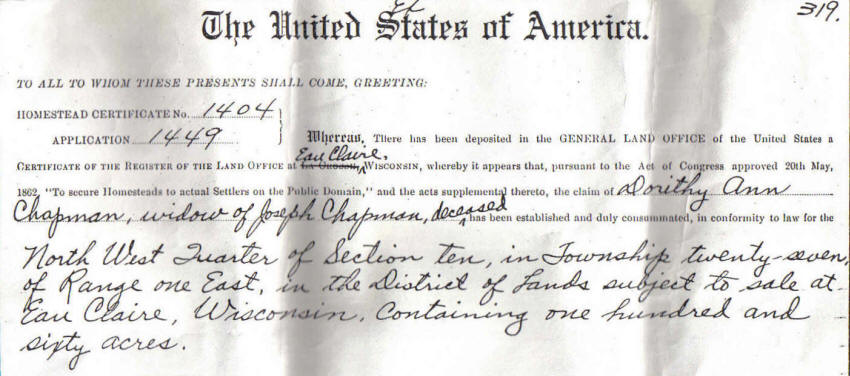 319.
The United States of America.
TO ALL TO WHOM THESE PRESENTS SHALL COME, GREETING:
HOMESTEAD CERTIFICATE No. 1404
APPLICATION 1449
Whereas, There has been deposited in the GENERAL LAND OFFICE of the United States a
Eau Claire,
CERTIFICATE OF THE REGISTER OF THE LAND OFFICE at La Crosse, WISCONSIN, whereby it appears that, pursuant to the Act of Congress approved 20th May,
1862, "To secure Homesteads to actual Settlers on the Public Domain," and the acts supplemental thereto, the claim of Dorithy Ann
Chapman, widow of Joseph Chapman, deceased has been established and duly consummated, in conformity to law for the
North West Quarter of Section ten, in Township twenty-seven,
of Range one East, in the District of Lands subject to sale at
Eau Claire, Wisconsin, Containing one hundred and
sixty acres.